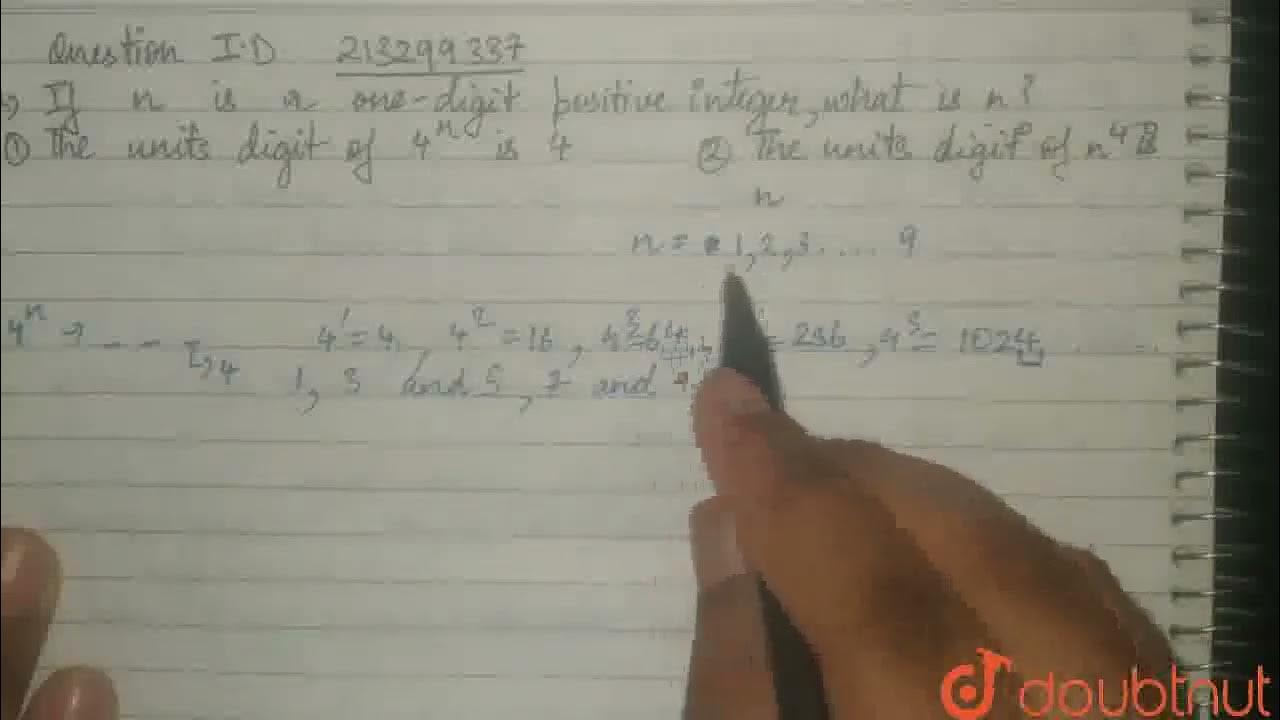 Question I.D 213299337
If n is a one-digit positive integer, what is n?
① The units digit of 4ⁿ is 4 ② The units digit of n⁴ is
n
n = 1, 2, 3 . . . . 9
4ⁿ → - - 4 4¹ = 4, 4² = 16, 4³ = 64, = 256, 4⁵ = 1024, . . .
1, 3 and 5, 7 and 9
doubtnut